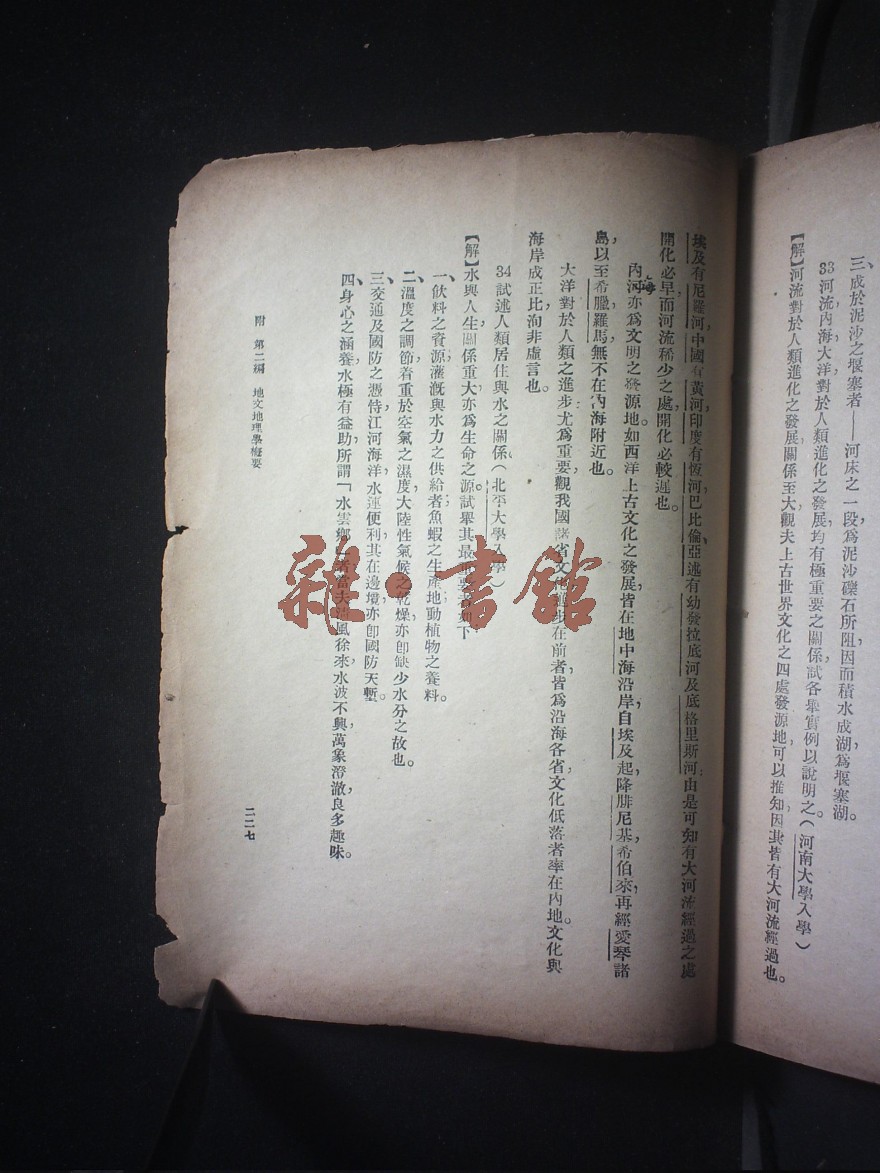 三、成於泥沙之堰塞者——河床之一段，爲泥沙礫石所阻，因而積水成湖，爲堰塞湖。
33 河流，內海，大洋，對於人類進化之發展，均有極重要之關係，試各舉實例以說明之。（河南大學入學）
【解】河流對於人類進化之發展，關係至大，觀夫上古世界文化之四處發源地，可以推知，因其皆有大河流經過也。
埃及有尼羅河，中國有黃河，印度有恆河，巴比倫、亞述有幼發拉底河及底格里斯河，由是可知有大河流經過之處，
開化必早，而河流稀少之處，開化必較遲也。
內河亦爲文明之發源地，如西洋上古文化之發展，皆在地中海沿岸，自埃及起，降腓尼基，希伯來，再經愛琴諸
海
島，以至希臘羅馬，無不在內海附近也。
大洋對於人類之進步，尤爲重要，觀我國諸省文化進步在前者，皆爲沿海各省，文化低落者，率在內地，文化與
海岸成正比，洵非虛言也。
34 試述人類居住與水之關係。（北平大學入學）
【解】水與人生，關係重大，亦爲生命之源，試舉其最重要者如下：
一、飲料之資源，灌漑與水力之供給者，魚蝦之生產地，動植物之養料。
二、溫度之調節，着重於空氣之濕度，大陸性氣候之乾燥，亦卽缺少水分之故也。
三、交通及國防之憑恃，江河海洋，水運便利，其在邊壤，亦卽國防天塹。
四、身心之涵養，水極有益助，所謂「水雲鄉」者，當夫淸風徐來，水波不興，萬象澄澈，良多趣味。
附　第二編　地文地理學概要
二二七
雜·書館